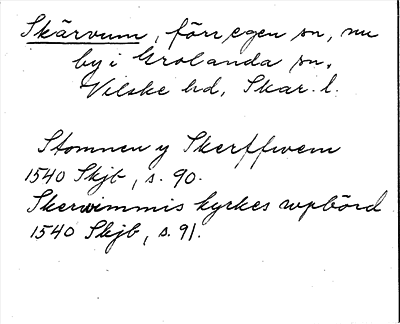 Skärvum, förr egen sn, nu
by i Grolanda sn,
Vilske hd, Skar. l.
Stomnen y Skerffwem
1540 Skjb, s. 90.
Skerwimmis kyrkes wpbörd
1540 Skjb, s. 91.